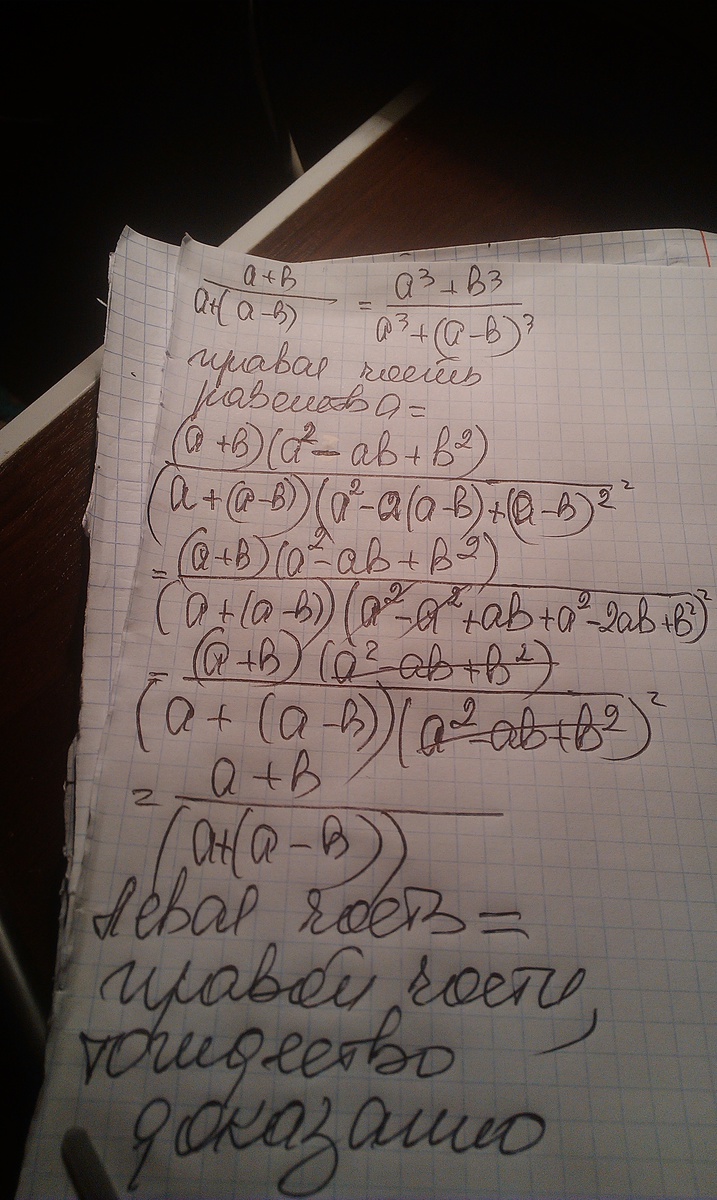 a+в / a+(a-в) = a³+в³ / a³+(a-в)³
правая часть
равенства =
(a+в)(a²-aв+в²) / (a+(a-в))(a²-a(a-в)+(a-в)²²
= (a+в)(a²-aв+в²) / (a+(a-в))(a²-a²+aв+a²-2aв+в²)²
= (a+в)(a²-aв+в²) / (a+(a-в))(a²-aв+в²)²
= a+в / (a+(a-в))
Левая часть =
правой части,
тождество
доказанно